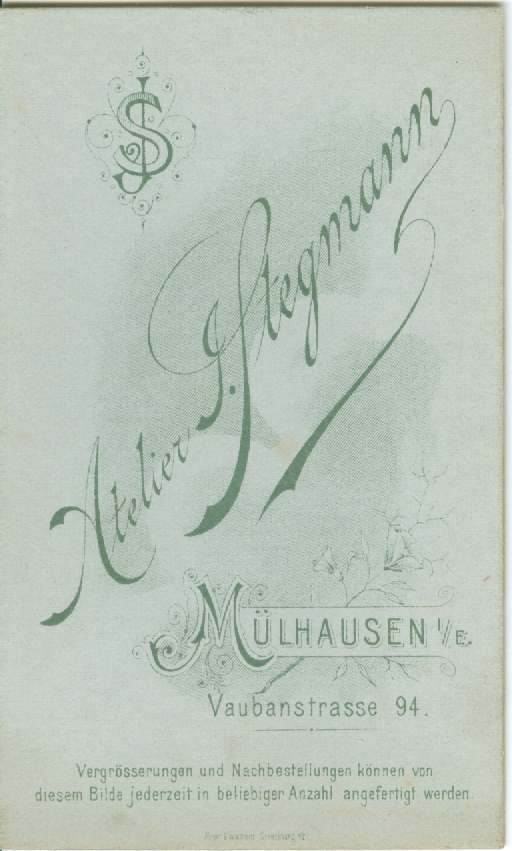 JS
Atelier J. Stegmann
MÜLHAUSEN I/E.
Vaubanstrasse 94.
Vergrösserungen und Nachbestellungen können von
diesem Bilde jederzeit in beliebiger Anzahl angefertigt werden.